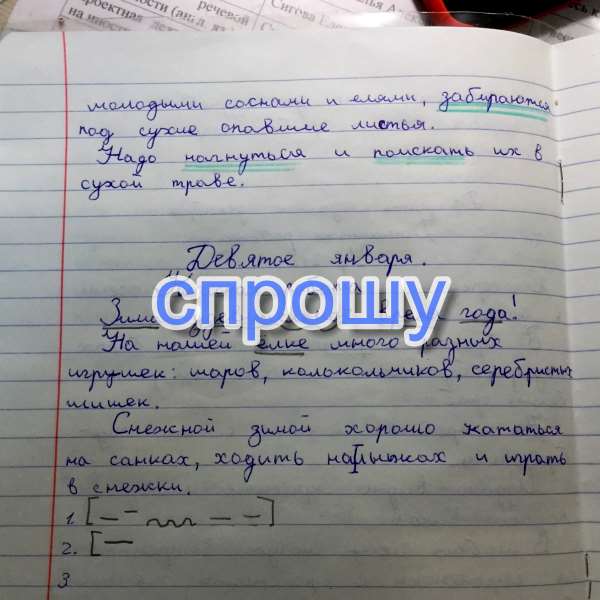 речевой
молодыми соснами и елями, забираются
под сухие опавшие листья.
Надо нагнуться и поискать их в
сухой траве.
Девятое января.
спрошу
года!
На нашей ёлке много разных
игрушек: шаров, колокольчиков, серебристых
шишек.
Снежной зимой хорошо кататься
на санках, ходить на лыжах и играть
в снежки.
1.
2.
3